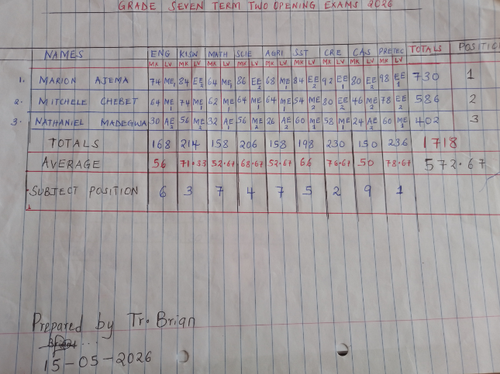 GRADE SEVEN TERM TWO OPENING EXAMS 2026
NAMES ENG KISW MATH SCIE AGRI SST CRE CAS PRETEC TOTALS POSITION
MK LV MK LV MK LV MK LV MK LV MK LV MK LV MK LV MK LV
1. MARION AJEMA 74 ME1 84 EE2 64 ME1 86 EE2 68 ME1 84 EE2 92 EE1 80 EE2 98 EE1 730 1
2. MITCHELE CHEBET 64 ME1 74 ME1 62 ME1 64 ME1 64 ME1 54 ME2 80 EE2 46 ME2 78 EE2 586 2
3. NATHANIEL MADEGWA 30 AE2 56 ME2 32 AE1 56 ME2 26 AE2 60 ME2 58 ME1 24 AE2 60 ME1 402 3
TOTALS 168 214 158 206 158 198 230 150 236 1718
AVERAGE 56 71.33 52.67 68.67 52.67 66 76.67 50 78.67 572.67
SUBJECT POSITION 6 3 7 4 7 5 2 9 1
Prepared by Tr. Brian
15-05-2026